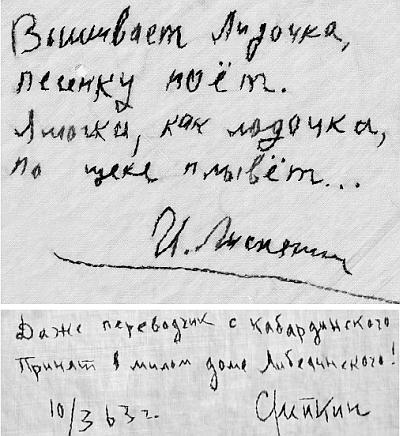 Вышивает Лидочка,
песенку поёт.
Ямочка, как лодочка,
по щеке плывёт...
И.
Даже переводчик с кабардинского
Принят в милом доме Либединского!
10/3 63 г.